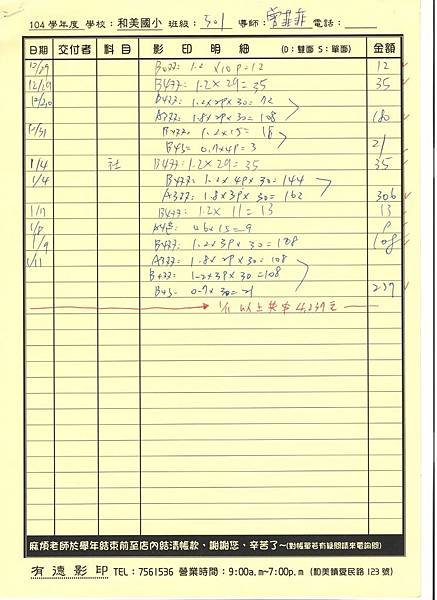 104 學年度 學校：和美國小 班級：301 導師：曾菲菲 電話：
日期 交付者 科目 影印明細 (D：雙面 S：單面) 金額
12/29 B4: 1.2 × 10P = 12 12
12/29 B4: 1.2 × 29 = 35 35
12/30 B4: 1.2×2P×30 = 72
A3: 1.8×2P×30 = 108 180
12/31 B4: 1.2×15 = 18
B4S = 0.7×4P = 3 21
1/4 社 B4: 1.2×29 = 35 35
1/4 B4: 1.2×4P×30 = 144
A3: 1.8×3P×30 = 162 306
1/7 B4: 1.2 × 11 = 13 13
0.6×15 = 9 9
1/9 B4: 1.2×3P×30 = 108 108
1/11 A3: 1.8×2P×30 = 108
B4: 1.2×3P×30 = 108
B4S: 0.7×30 = 21 237
1/11 以上共計 4,237元
麻煩老師於學年結束前至店內結清帳款，謝謝您、辛苦了~(對帳單若有疑問請來電詢問)
有德影印 TEL：7561536 營業時間：9:00a.m~7:00p.m (和美鎮愛民路123號)